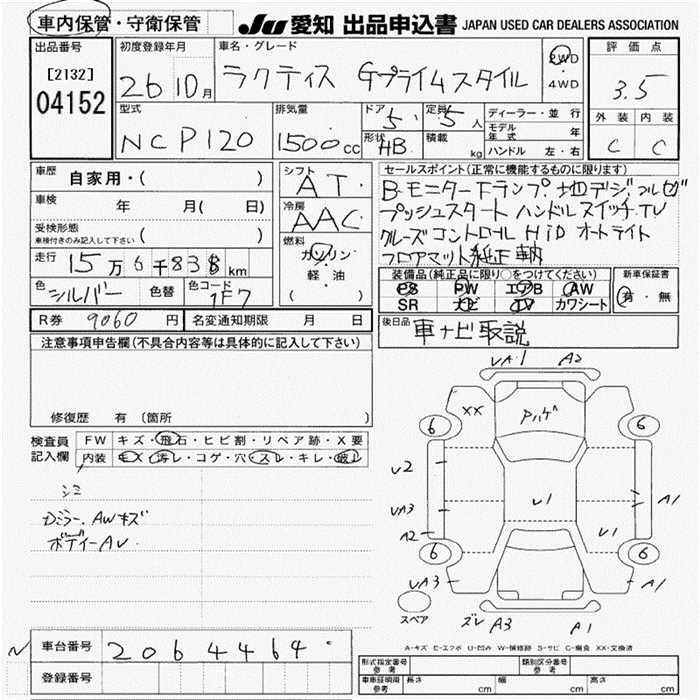 車内保管・守衛保管 JU 愛知 出品申込書 JAPAN USED CAR DEALERS ASSOCIATION
出品番号 初度登録年月 車名・グレード 評価点
[2132] 26 10月 ラクティス Gプライムスタイル 2WD ・ 4WD 3.5
04152
型式 排気量 ドア 5 定員 5人 ディーラー・並行 外装 内装
NCP120 1500cc 形状 HB 積載 kg モデル年式 年 C C
ハンドル 左・右
車歴 自家用・( ) シフト AT セールスポイント(正常に機能するものに限ります)
車検 年 月( 日) 冷房 AAC B.モニター Fランプ 地デジ フルセグ
受検形態 プッシュスタート ハンドルスイッチ TV
車検付きのみ記入して下さい 燃料 ガソリン クルーズコントロール HiD オートライト
走行 15万6千838km 軽・油 フロアマット 純正
色 シルバー 色替 色コード 1F7 ( ) 装備品(純正品に限り○をつけてください) 新車保証書
PS PW エアB AW 有・無
SR ナビ TV カワシート
R券 9060円 名変通知期限 月 日 後日品 車ナビ取説
注意事項申告欄(不具合内容等は具体的に記入して下さい)
VA1 A2
XX Pハゲ
修復歴 有 (箇所 ) 6 6
検査員 FW キズ・飛石・ヒビ割・リペア跡・X要
記入欄 内装 キズ・汚レ・コゲ・穴・スレ・キレ・破レ
V2
シミ U1 A1
Dミラー.AWキズ VA3 U1
ボディーAU A2
6 6
VA3 A1
スペア ズレ A3 A1
車台番号 2064464
A-キズ E-エクボ U-凹み W-補修跡 S-サビ C-腐食 XX-交換済
登録番号 形式指定番号 参考 類別区分番号 参考
車車証明用 参考 長さ cm 幅 cm 高さ cm